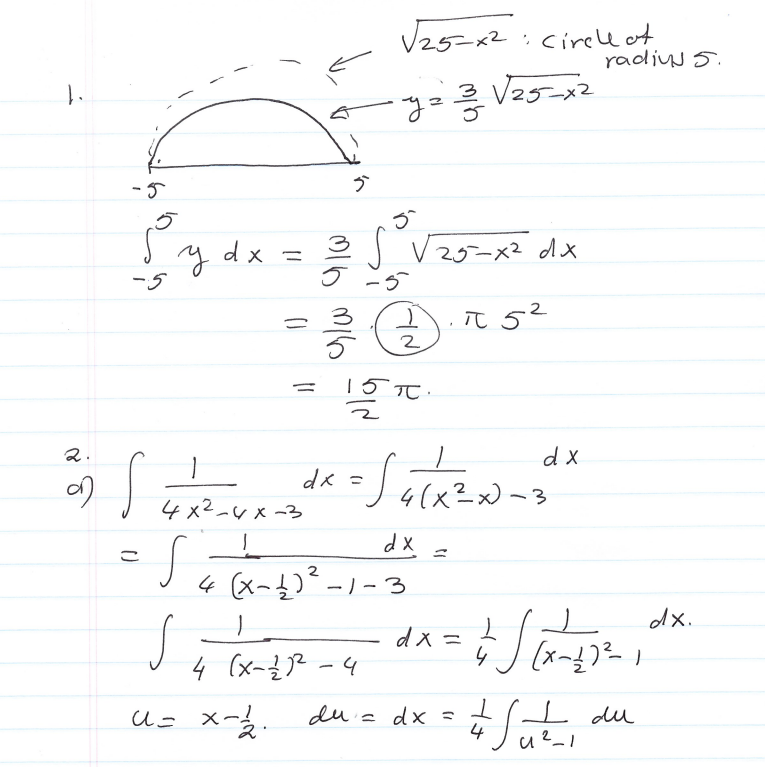 √25-x² : circle of
radius 5.
1.
y = 3/5 √25-x²
-5 5
∫₋₅⁵ y dx = 3/5 ∫₋₅⁵ √25-x² dx
= 3/5 · 1/2 · π 5²
= 15/2 π.
2.
a) ∫ 1/(4x²-4x-3) dx = ∫ 1/(4(x²-x)-3) dx
= ∫ 1/(4(x-1/2)²-1-3) dx =
∫ 1/(4(x-1/2)²-4) dx = 1/4 ∫ 1/((x-1/2)²-1) dx.
u = x-1/2. du = dx = 1/4 ∫ 1/(u²-1) du